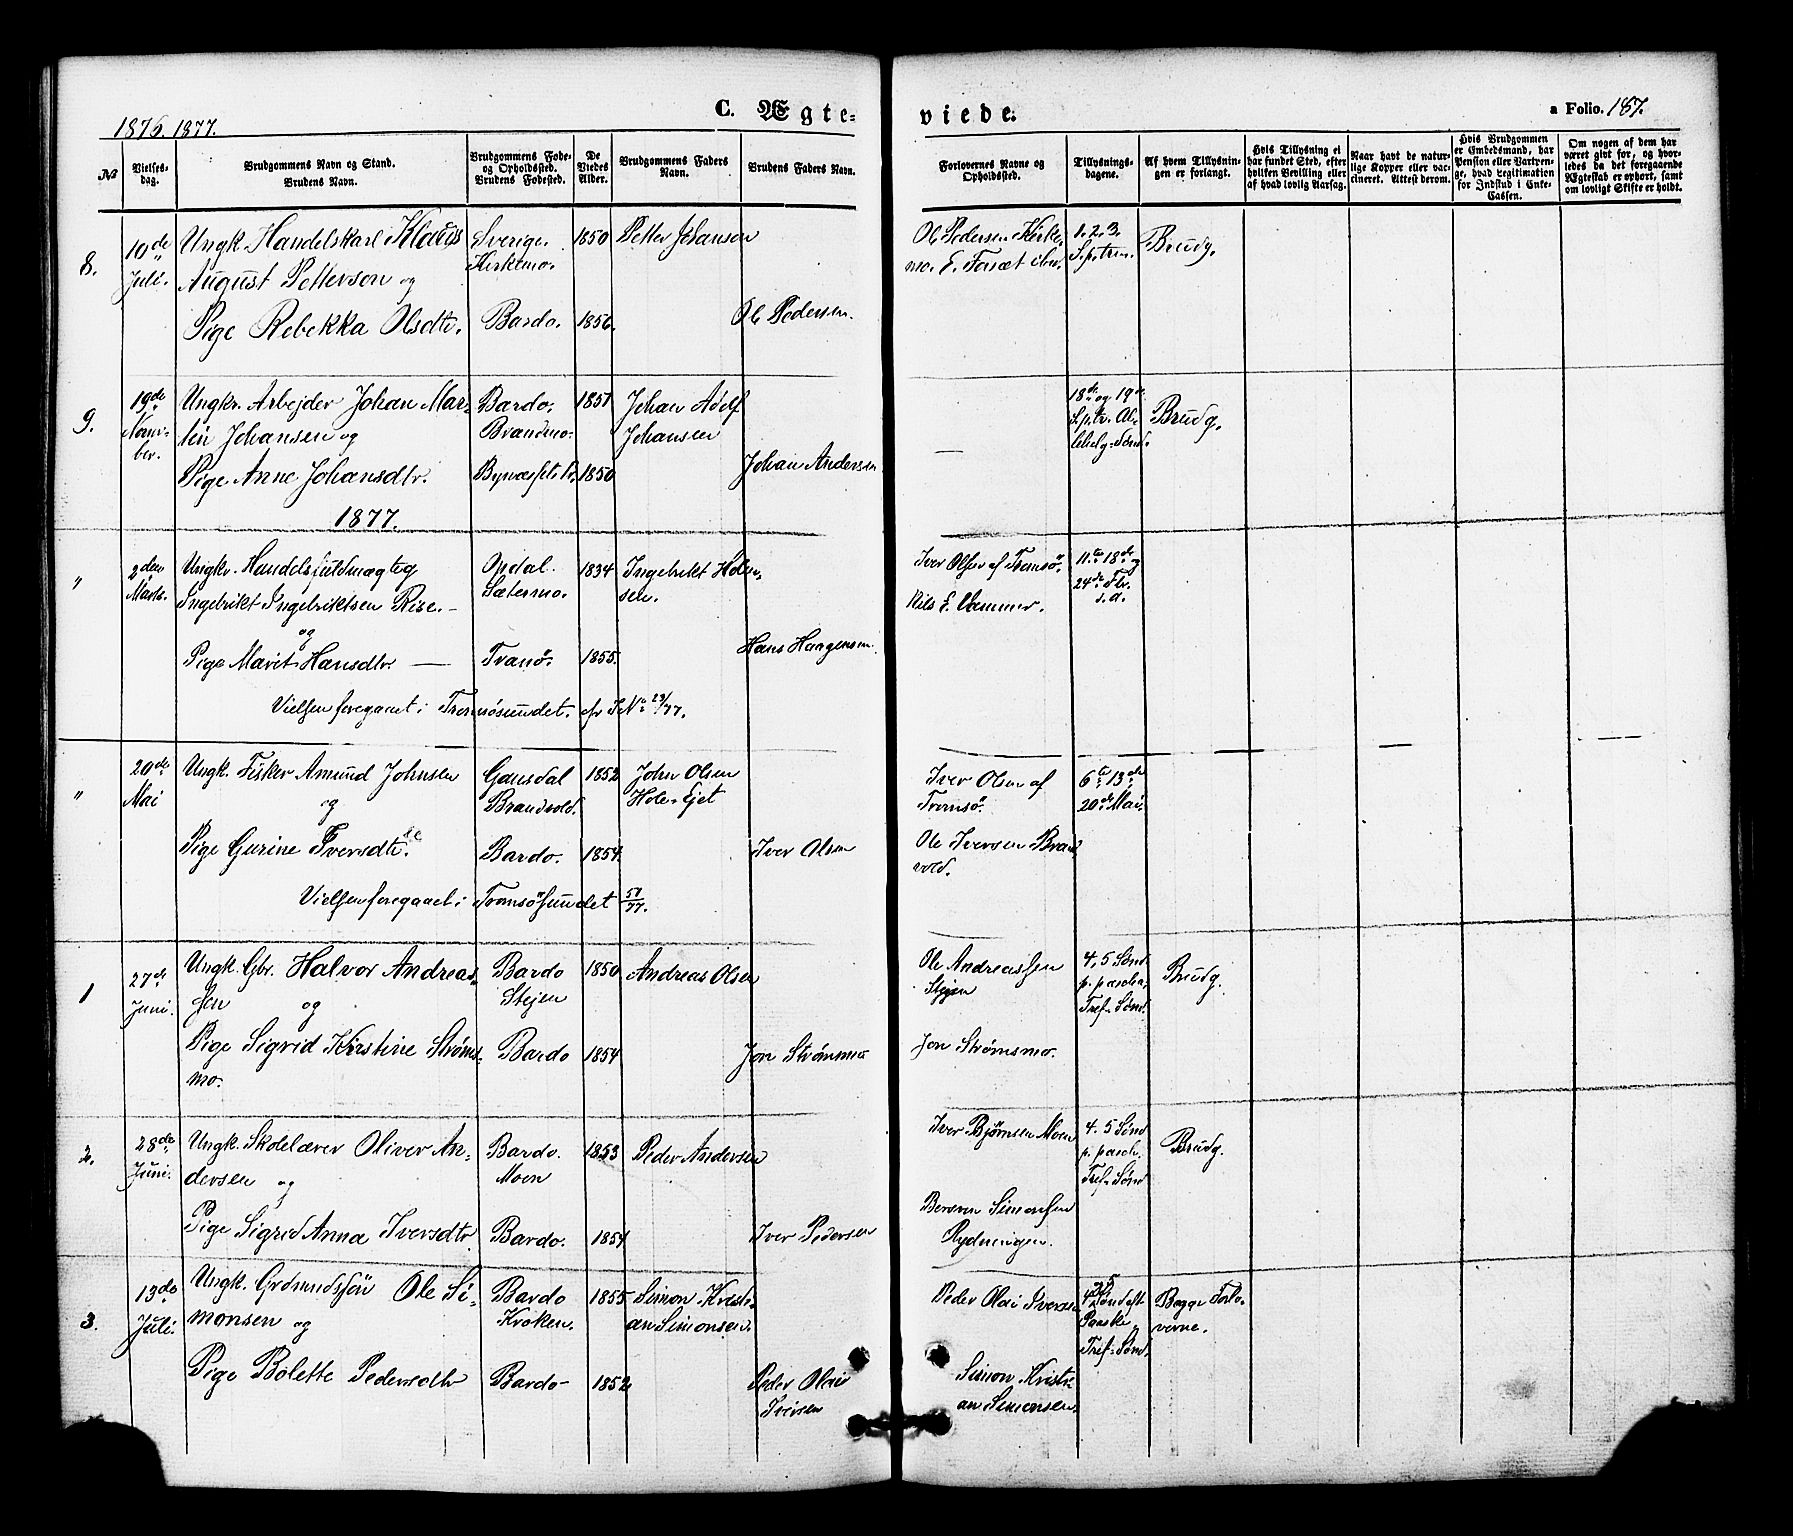 1876. 1877.
C. Ægte-
viede.
a Folio. 187.
No
Vielses-
dag.
Brudgommens Navn og Stand.
Brudens Navn.
Brudgommens Føde-
og Opholdssted.
Brudens Fødested.
De
Viedes
Alder.
Brudgommens Faders
Navn.
Brudens Faders Navn.
Forlovernes Navne og
Opholdssted.
Tillysnings-
dagene.
Af hvem Tillysnin-
gen er forlangt.
Hvis Tillysning ei
har fundet Sted, efter
hvilken Bevilling eller
af hvad lovlig Aarsag.
Naar havt de natur-
lige Kopper eller vac-
cineret. Attest derom.
Hvis Brudgommen
er Embedsmand, har
Pension eller Vartpen-
ge, hvad Legitimation
for Indskud i Enke-
Cassen.
Om nogen af dem har
været gift før, og hvor-
ledes da det foregaaende
Ægteskab er ophørt, samt
om lovligt Skifte er holdt.
8.
10de
Juli.
Ungk. Handelskarl Klaus
August Petterson og
Pige Rebekka Olsdtr.
Sverige.
Kirkemo.
Bardo.
1850
1856.
Petter Johanson
Ole Pedersen.
Ole Pedersen Kirke-
mo. E. Fosæt ibd.
1. 2. 3.
S. p. trin.
Brudg.
9.
19de
Novm-
ber.
Ungkr. Arbejder Johan Mar-
tin Johansen og
Pige Anne Johansdtr.
Bardo,
Brandmo.
1851
1850
Johan Adolf
Johansen
Johan Andersen
—
18de og 19de
S. p. tr. Al-
lehelg. Sønd.
Brudg.
1877.
"
2den
Marts.
Ungkr. Handelsfuldmægtig
Ingebrikt Ingebriktsen Rise. —
og
Pige Marit Hansdtr. —
Opdal.
Sætermo.
Tranø.
1834
1855.
Ingebrikt Halvor-
sen.
Hans Haagensen.
Vielsen foregaaet i Tromsøsundet. efr. S No 23/77.
Iver Olsen af Tromsø.
Nils E. Vammer.
11te 18de og
24de Fbr.
d. a.
"
20de
Mai
Ungk. Fisker Amund Johnsen
og
Pige Gurine Iversdtr.
Gausdal
Brandvold.
Bardo.
1852
1854.
John Olsen
Hole Ejet
Iver Olsen
Vielsen foregaaet i Tromsøsundet 51/77.
Iver Olsen af
Tromsø.
Ole Iversen Brand
vold.
6te 13de
20de Mai.
1
27de
Juni.
Ungk. Gbr. Halvor Andreas-
sen og
Pige Sigrid Kirstine Strøms-
mo.
Bardo
Stejen
Bardo
1850
1854
Andreas Olsen
Jon Strømsmo
Ole Andreassen
Stejen
Jon Strømsmo.
4. 5 Sønd
p. pascha,
Tref. Sønd.
Brudg.
2.
28de
Juni.
Ungk. Skolelærer Oliver An-
dersen og
Pige Sigrid Anna Iversdtr
Bardo.
Moen
Bardo.
1853
1854
Peder Andersen
Iver Pedersen
Iver Bjørnsen Moen
Bersven Simonsen
Rydningen.
4. 5 Sønd
p. pasch.
Tref. Sønd
Brudg.
3.
13de
Juli.
Ungk. Grdmandssøn Ole Si-
monsen og
Pige Bolette Pedersdtr
Bardo
Kroken.
Bardo—
1855
1852
Simon Kristi-
an Simonsen.
Peder Olai
Iversen
Peder Olai Iversen
Simon Kristi-
an Simonsen.
4 og 5
Sønd eft
Paaske,
Tref. Sønd.
Begge Forlo-
verne.